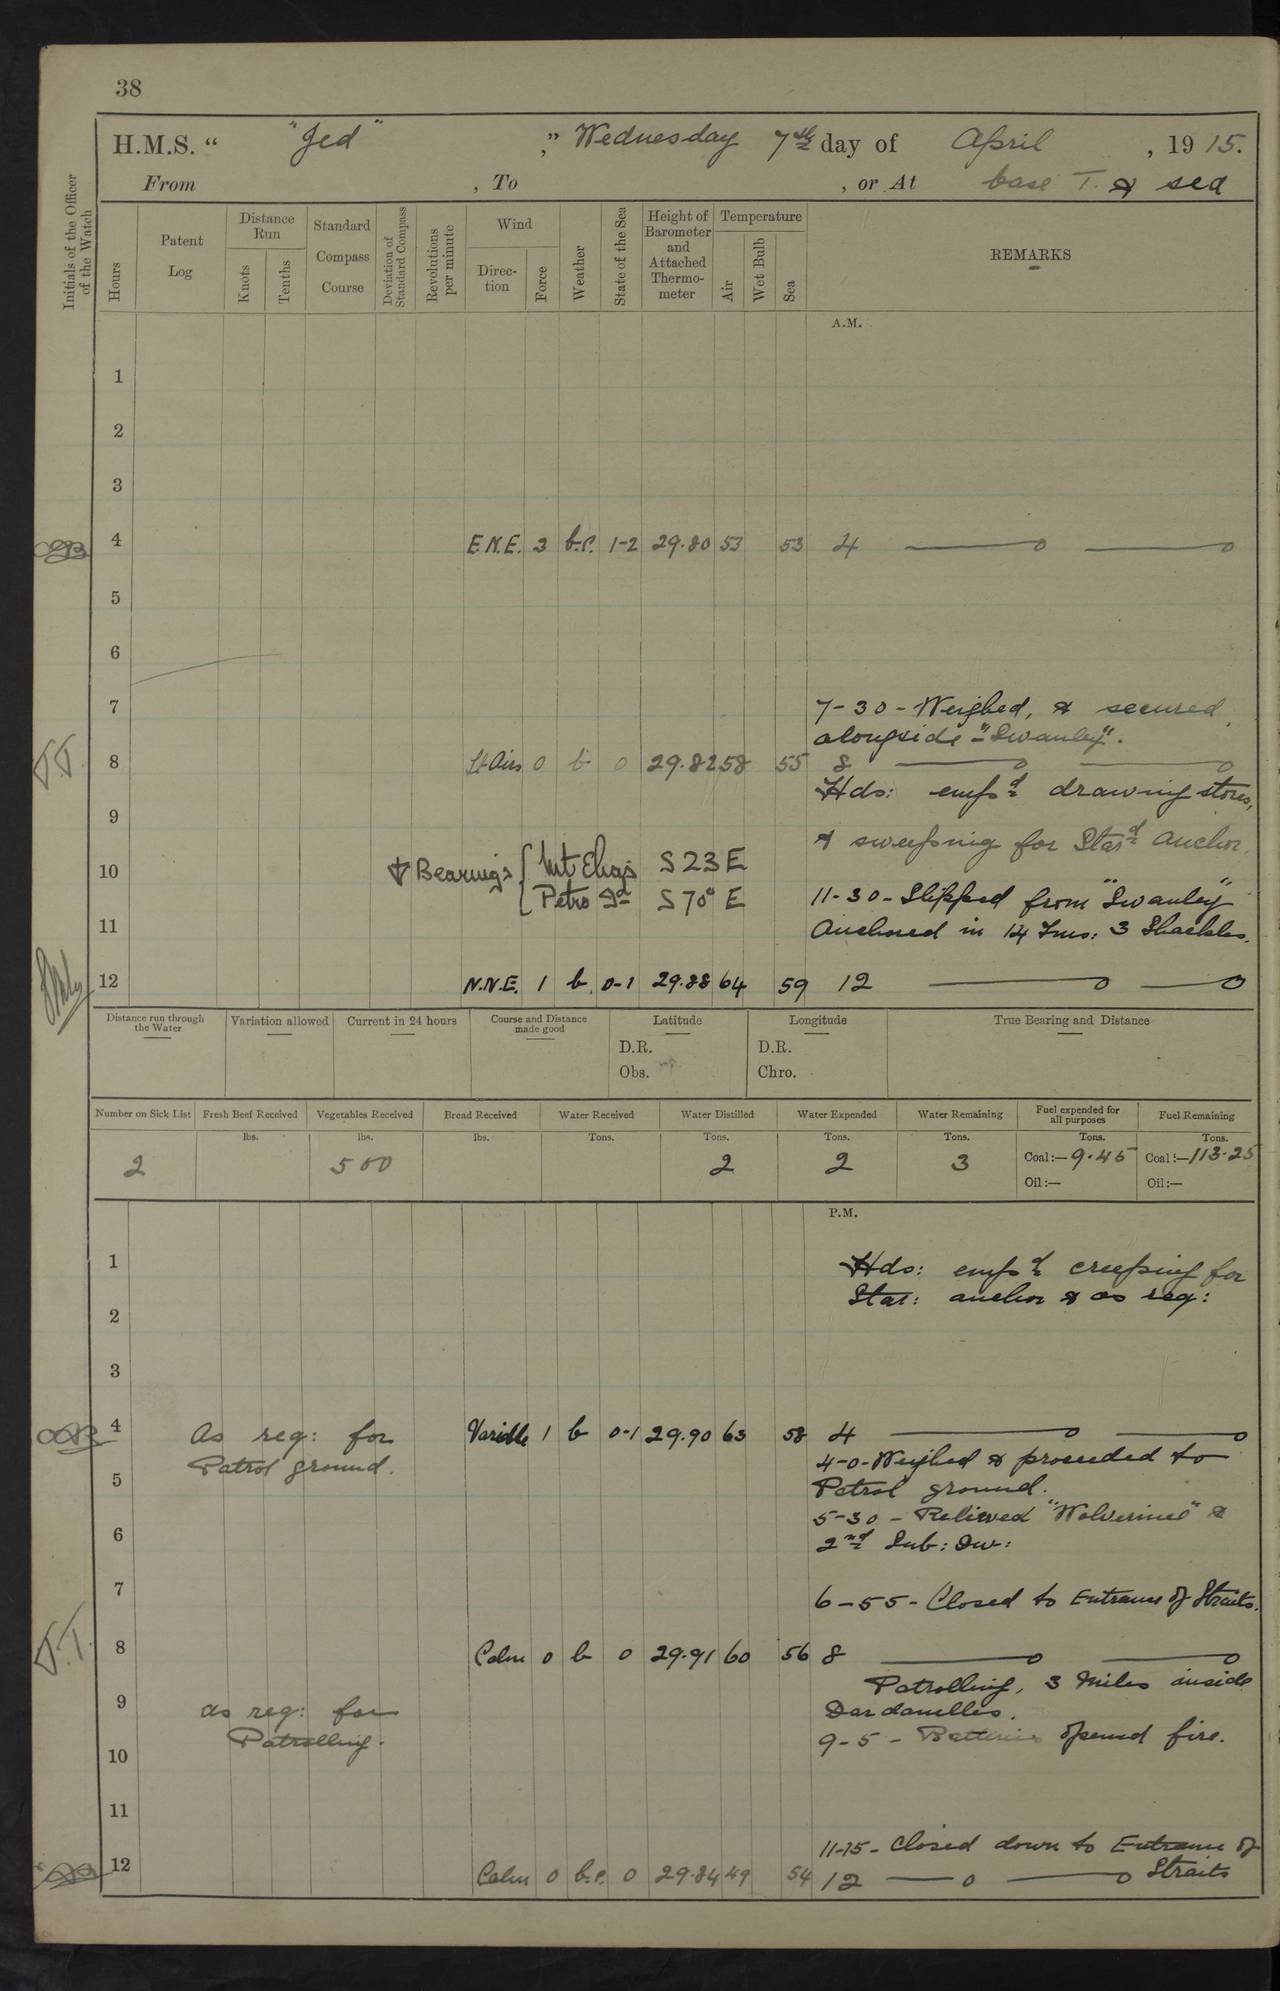 38
H.M.S. " "Jed" ," Wednesday 7th day of April , 19 15.
From , To , or At base T. & sea
Initials of the Officer of the Watch
Hours
Patent Log
Distance Run
Knots
Tenths
Standard Compass Course
Deviation of Standard Compass
Revolutions per minute
Wind
Direction
Force
Weather
State of the Sea
Height of Barometer and Attached Thermometer
Temperature
Air
Wet Bulb
Sea
REMARKS
A.M.
1
2
3
4 E.N.E. 3 b.c. 1-2 29.80 53 53 4
5
6
7 7-30- Weighed, & secured
alongside "Swanley".
J.T. 8 Lt Airs 0 b 0 29.82 58 55 8
Hds: empd drawing stores,
9
& sweeping for Stard anchor.
10 Bearings { Mt Elias S 23 E
{ Petro Id S 70° E
11-30- Slipped from "Swanley"
11 Anchored in 14 Fms: 3 Shackles.
12 N.N.E. 1 b 0-1 29.88 64 59 12
Distance run through the Water
Variation allowed
Current in 24 hours
Course and Distance made good
Latitude
D.R.
Obs.
Longitude
D.R.
Chro.
True Bearing and Distance
Number on Sick List Fresh Beef Received Vegetables Received Bread Received Water Received Water Distilled Water Expended Water Remaining Fuel expended for all purposes Fuel Remaining
lbs. lbs. lbs. Tons. Tons. Tons. Tons. Tons. Tons.
2 500 2 2 3 Coal:— 9.45 Coal:— 113.25
Oil:— Oil:—
P.M.
1 Hds: empd creeping for
Star: anchor & as req:
2
3
4 As req: for Variable 1 b 0-1 29.90 63 58 4
Patrol ground.
4-0- Weighed & proceeded to
5 Patrol ground.
5-30- Relieved "Wolverine" &
6 2nd Sub: Div:
7 6-55- Closed to Entrance of Straits.
J.T. 8 Calm 0 b 0 29.91 60 56 8
Patrolling, 3 Miles inside
9 as req: for Dardanelles.
Patrolling.
9-5- Batteries opened fire.
10
11
11-15- Closed down to Entrance of
Straits
12 Calm 0 b.c. 0 29.84 49 54 12